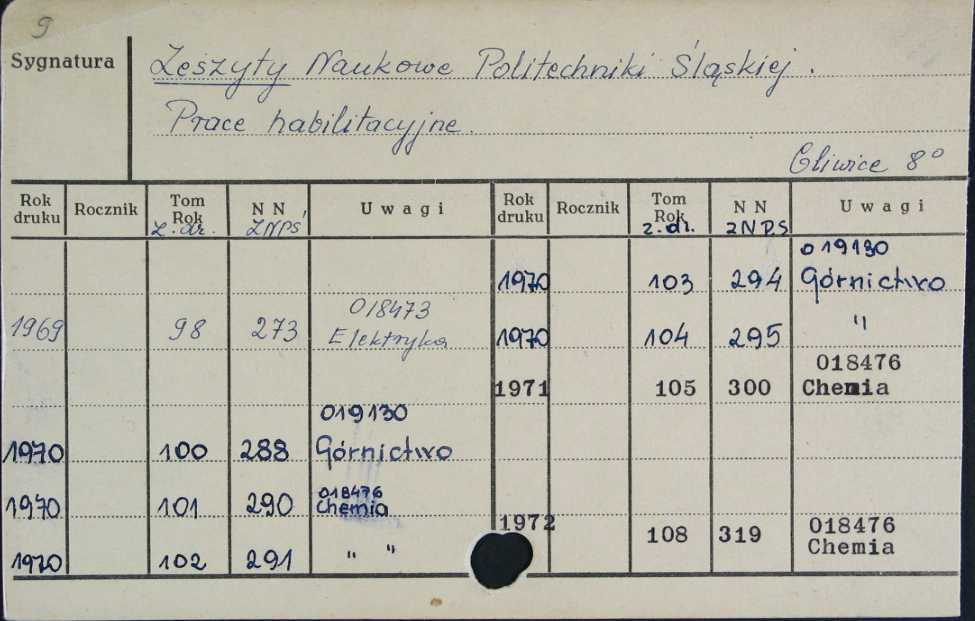 9
Sygnatura
Zeszyty Naukowe Politechniki Śląskiej.
Prace habilitacyjne.
Gliwice 8°
Rok druku Rocznik Tom Rok z. dr. N N ZNPŚ Uwagi
1969 98 273 018473 Elektryka
1970 100 288 019130 Górnictwo
1970 101 290 018476 Chemia
1970 102 291 " "
Rok druku Rocznik Tom Rok z. dr. N N ZNPS Uwagi
1970 103 294 019130 Górnictwo
1970 104 295 "
1971 105 300 018476 Chemia
1972 108 319 018476 Chemia